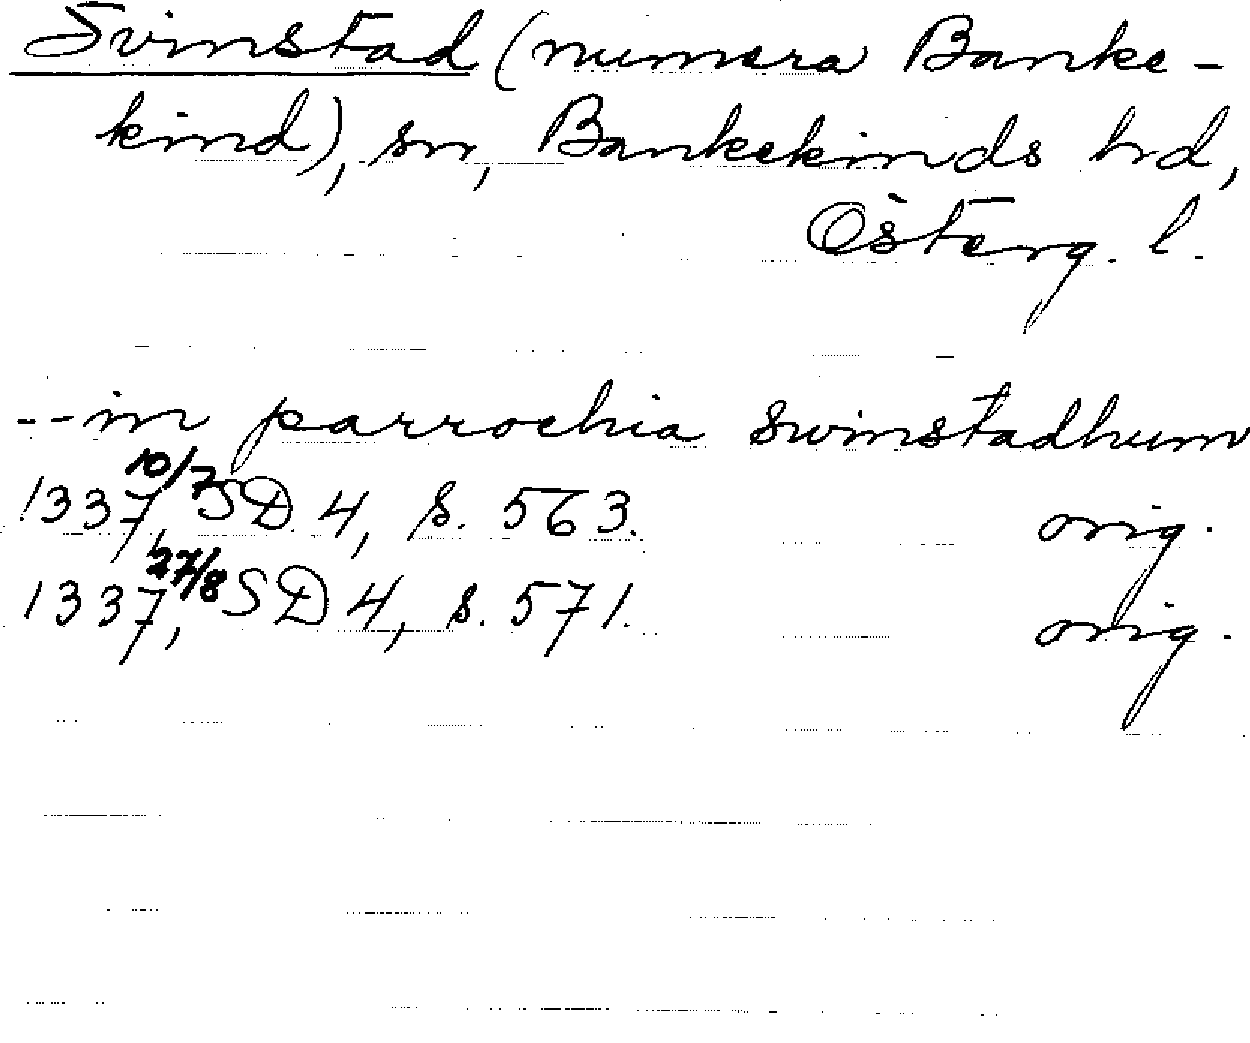 Svinstad (numera Banke-
kind), sn, Bankekinds hrd,
Österg. l.
--in parrochia swinstadhum
1337 10/7, SD 4, s. 563. orig.
1337, 27/8 SD 4, s. 571. orig.